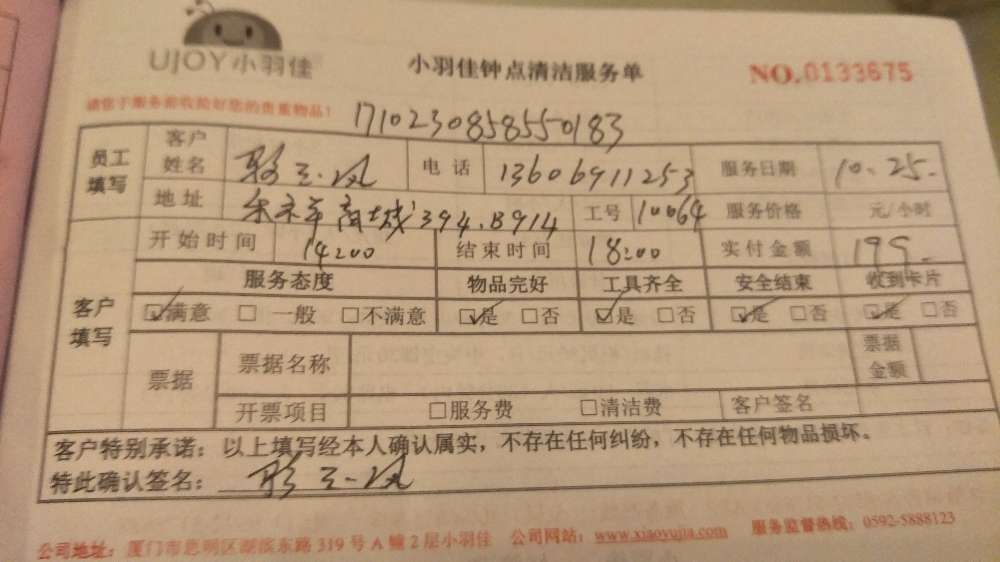 UJOY小羽佳 小羽佳钟点清洁服务单 NO.0133675
请您于服务前收捡好您的贵重物品!
1710230858550183
员工填写 客户姓名 电话 13606911253 服务日期 10.25.
地址 394.B914 工号 10064 服务价格 元/小时
客户填写 开始时间 14:00 结束时间 18:00 实付金额 199.
服务态度 物品完好 工具齐全 安全结束 收到卡片
☑满意 □一般 □不满意 ☑是 □否 ☑是 □否 ☑是 □否 ☑是 □否
票据 票据名称 票据金额
开票项目 □服务费 □清洁费 客户签名
客户特别承诺:以上填写经本人确认属实,不存在任何纠纷,不存在任何物品损坏。
特此确认签名:
公司地址:厦门市思明区湖滨东路319号A幢2层小羽佳 公司网站:www.xiaoyujia.com 服务监督热线:0592-5888123